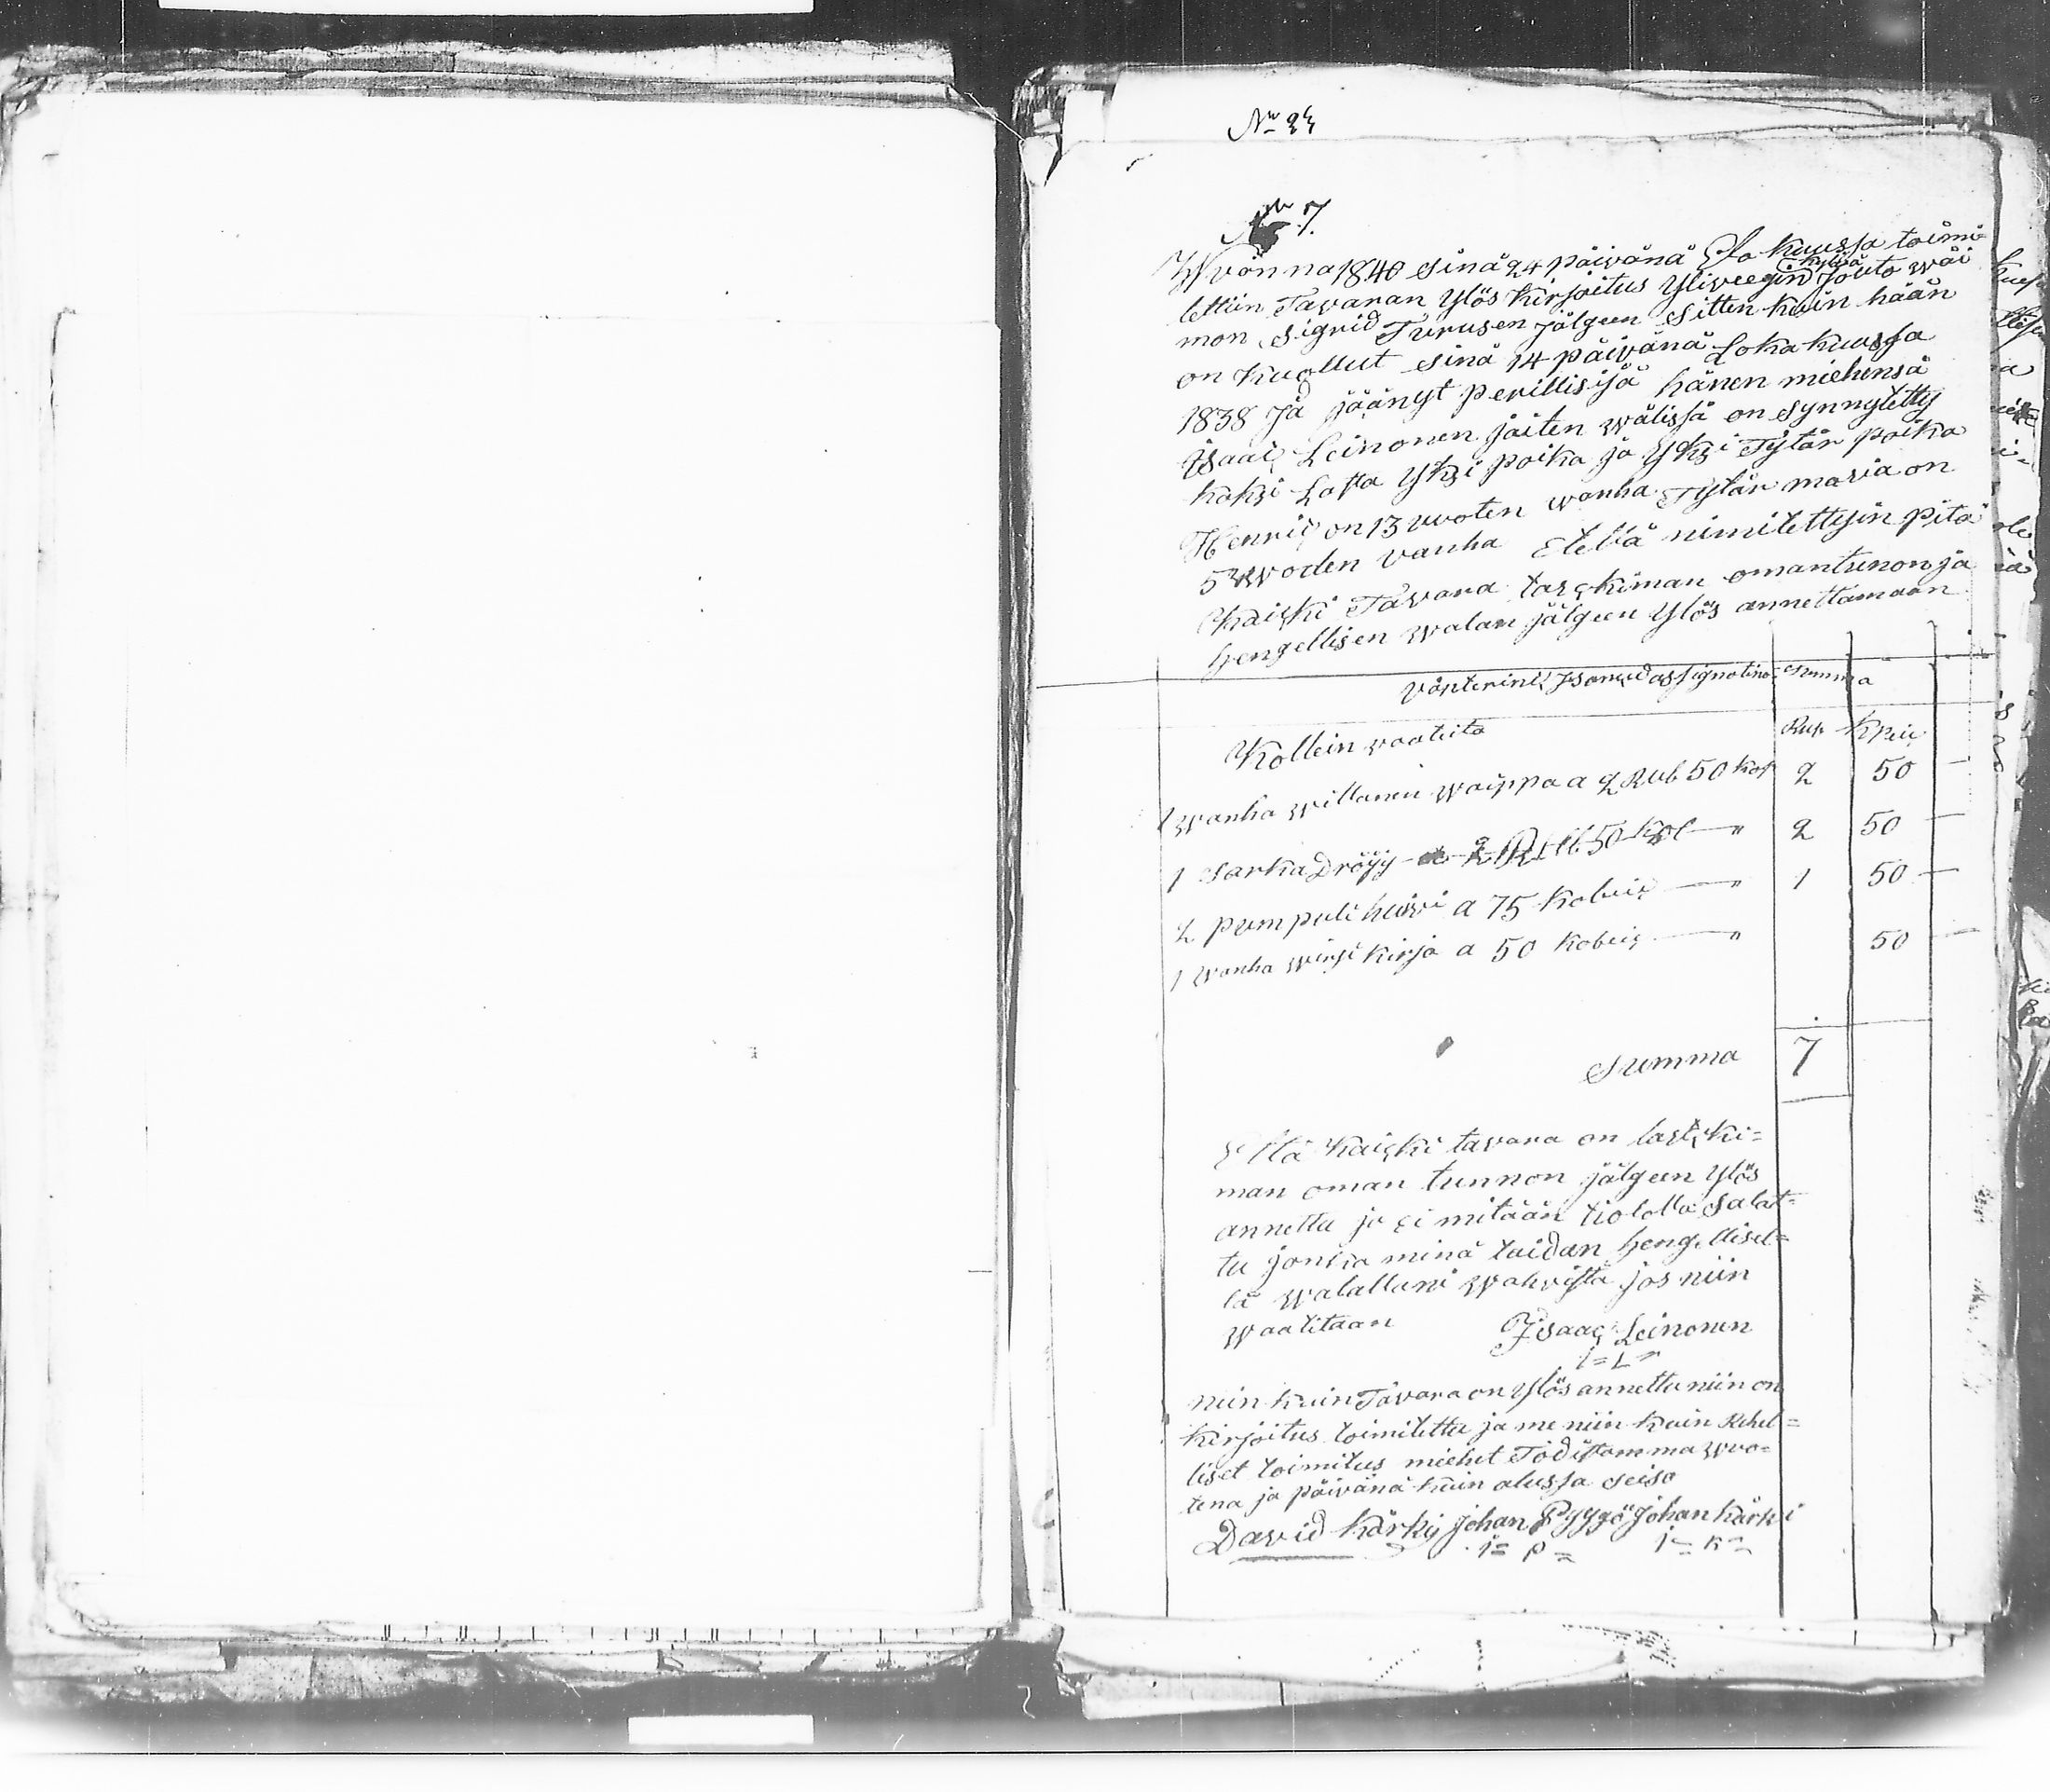 No 24
No 7
Wvönna 1840 sinä 24 päivänä Lokakuussa toimi=
tettiin Tavaran Ylös Kirjoitus Yliveegin kylisä Jouto wai
mon Sigrid Turusen jälgeen sitten kuin hään
on Kuollut sinä 14 päivänä Lokakuussa
1838 Ja jäänyt perillisijä hänen miehensä
Isaac Leinonen jäiten wälissä on synnytetty
kaksi Lasta Yksi poika ja Yksi Tytär poika
Henric on 13 vvoten wanha Tytär maria on
5 wvoden vanha Etellä nimitettyin pitä
Kaicki Tavara tarckiman omantunon ja
hengellisen walan jälgeen Ylös annettamaan
summa
Kollein vaateita
Rup Kpeic
1 wanha willanen waippa a 2 Rub 50 kop 2 50
1 sarka Dröijy a 2 Rubl 50 kop " 2 50
2 pumpuli huivi a 75 kobeic " 1 50
1 wanha wirsi kirja a 50 kobeic " 50
summa 7
Että Kaicki tavara on tartcki=
man oman tunnon jälgeen Ylös
annettu ja ei mitään tiololla salat=
tu jonka minä taidan hengellisel=
lä walallani wahvista jos niin
waatitaan Isaac Leinonen
I = L =
niin kuin Tavara on Ylös annettu niin on
kirjoitus toimitettu ja me niin kuin Rehel=
liset toimitus miehet Todistamma wvo=
tena ja päivänä kuin alussa seiso
David Kärki Johan Pyyyö Johan Kärki
i = P = j = K =